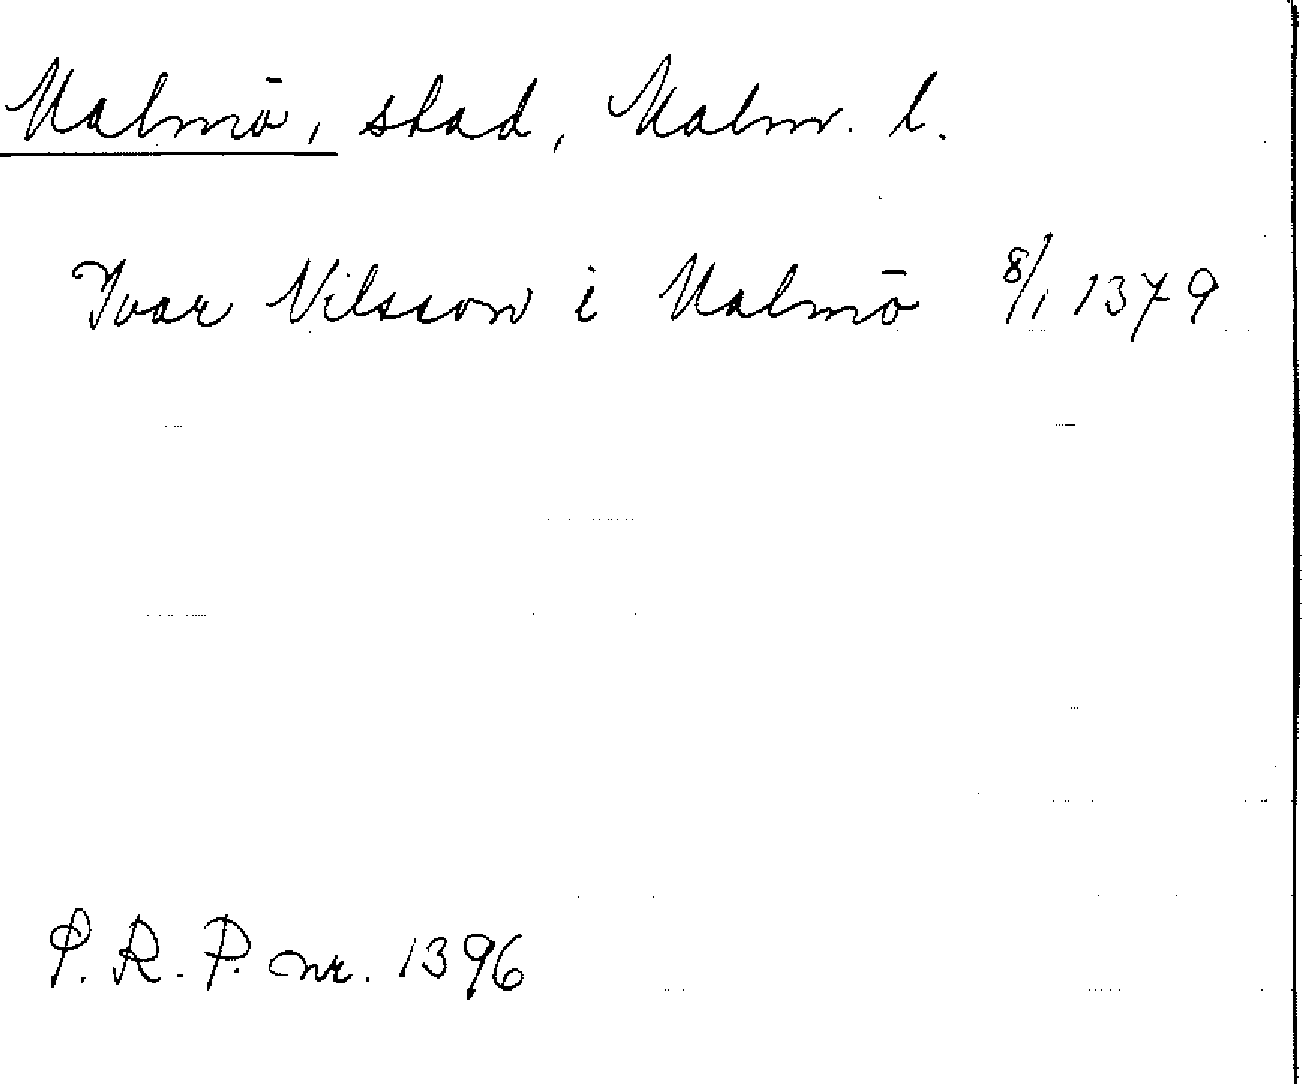 Malmö, stad, Malm. l.
Ivar Nilsson i Malmö 8/1 1379
P. R. P. nr. 1396